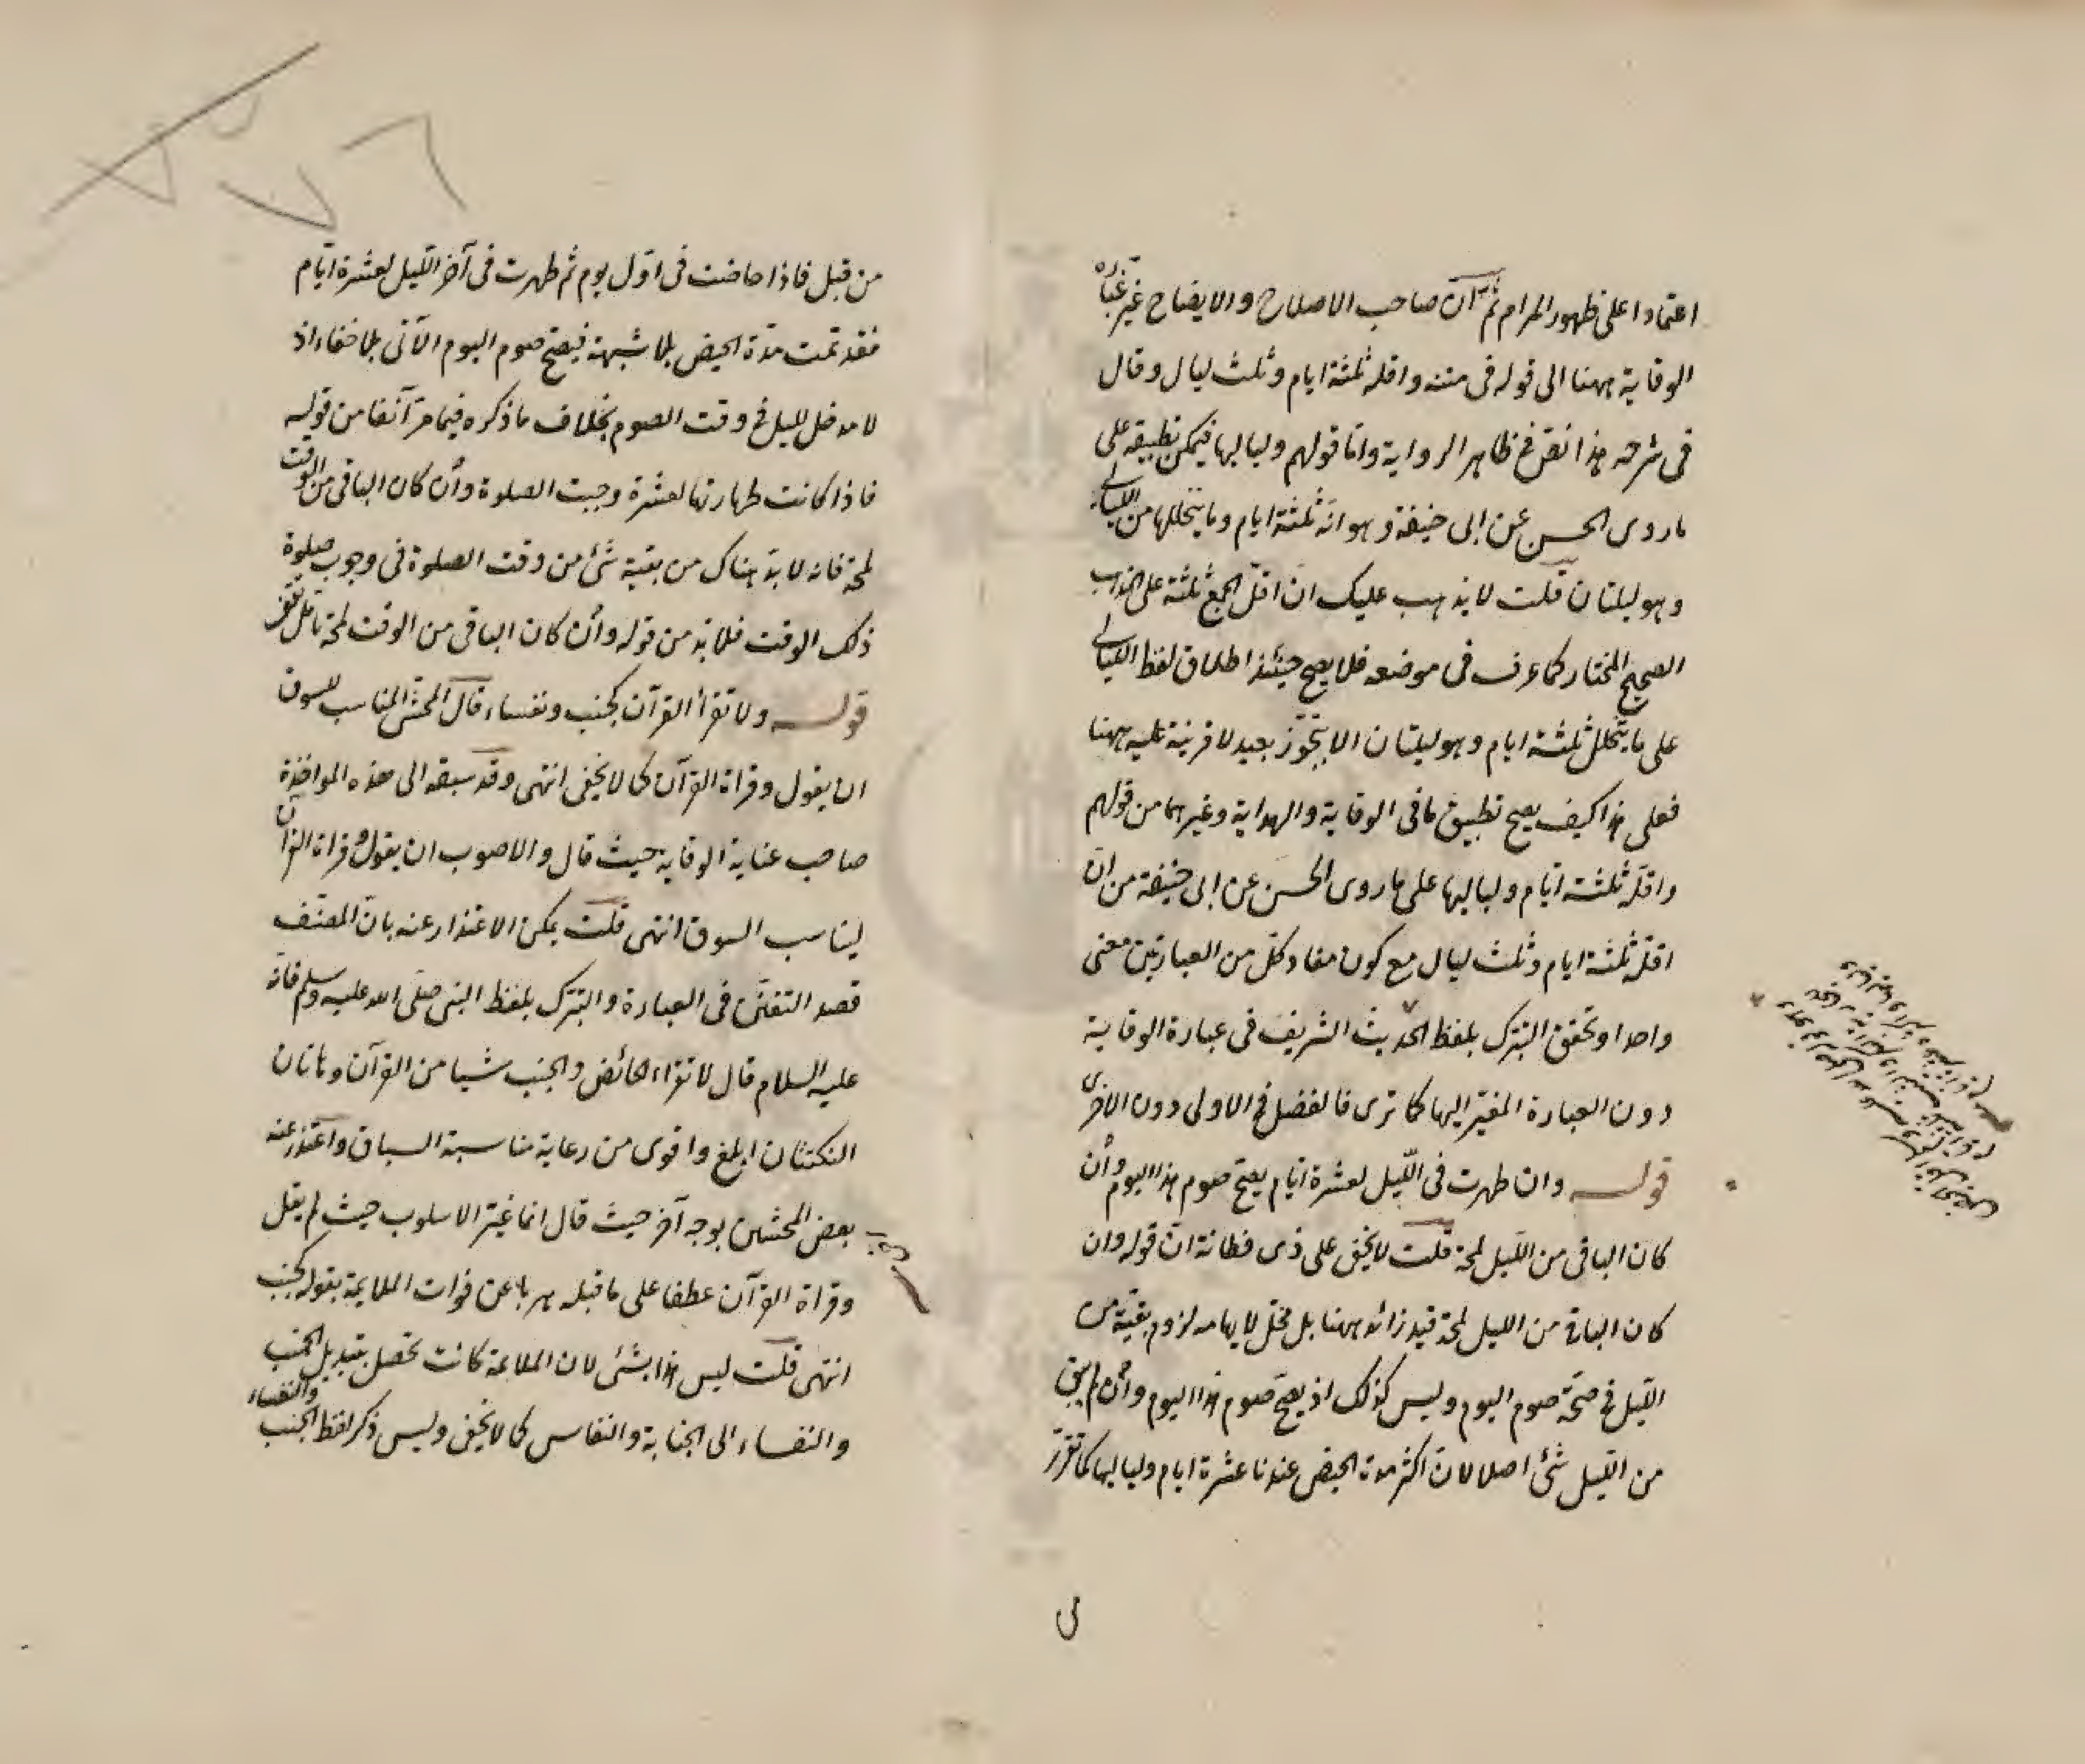 اعتمادا على ظهور المرام ثم ان صاحب الاصلاح والايضاح غير عبارة
الوقاية ههنا الى قوله فى متنه واقله ثلثة ايام وثلث ليال وقال
فى شرحه هذا نص فى ظاهر الرواية واما قولهم ولياليها فيمكن تطبيقه على
ما روى الحسن عن ابى حنيفة وهو انه ثلثة ايام وما يتخللها من الليالى
وهو ليلتان قلت لا يذهب عليك ان اقل الجمع ثلثة على المذهب
الصحيح المختار كما عرف فى موضعه فلا يصح حينئذ اطلاق لفظ الليالى
على ما يتخلل ثلثة ايام وهو ليلتان الا بتجوز بعيد لا قرينة عليه ههنا
فعلى هذا كيف يصح تطبيق ما فى الوقاية والهداية وغيرهما من قولهم
واقله ثلثة ايام ولياليها على ما روى الحسن عن ابى حنيفة من ان
اقله ثلثة ايام وثلث ليال مع كون مفاد كل من العبارتين معنى
واحدا وتحقق التبرك بلفظ الحديث الشريف فى عبارة الوقاية
دون العبارة المغير اليها كما ترى فالفضل فى الاولى دون الاخرى
قوله وان طهرت فى الليل لعشرة ايام يصح صوم هذا اليوم وأن
كان الباقى من الليل لمحة قلت لا يخفى على ذى فطانة ان قوله وان
كان الباقى من الليل لمحة قيد زائد ههنا بل مخل لايهامه لزوم بقية من
الليل فى صحة صوم اليوم وليس كذلك اذ يصح صوم هذا اليوم وأن لم يبق
من الليل شئ اصلا لان اكثر مدة الحيض عندنا عشرة ايام ولياليها كما تقرر
من قبل فاذا حاضت فى اول يوم ثم طهرت فى آخر الليل لعشرة ايام
فقد تمت مدة الحيض بلا شبهة فيصح صوم اليوم الآتى بلا خفاء اذ
لا مدخل لليل فى وقت الصوم بخلاف ما ذكره فيما مر آنفا من قوله
فاذا كانت طهارتها لعشرة وجبت الصلوة وأن كان الباقى من الوقت
لمحة فانه لا بد هناك من بقية شئ من وقت الصلوة فى وجوب صلوة
ذلك الوقت فلا بد من قوله وأن كان الباقى من الوقت لمحة تأمل تقف
قوله ولا تقرأ القرآن كجنب ونفساء قال المحشى المناسب للسوق
ان يقول وقراة القرآن كما لا يخفى انتهى وقد سبقه الى هذه المواخذة
صاحب عناية الوقاية حيث قال والاصوب ان يقول وقراة القرآن
ليناسب السوق انتهى قلت يمكن الاعتذار عنه بان المصنف
قصد التفنن فى العبارة والتبرك بلفظ النبى صلى الله عليه وسلم فانه
عليه السلام قال لا تقراء الحائض والجنب شيا من القرآن وهاتان
النكتتان ابلغ واقوى من رعاية مناسبة السباق واعتذر عنه
بعض المحشين بوجه آخر حيث قال انما غير الاسلوب حيث لم يقل
وقراة القرآن عطفا على ما قبله هربا عن فوات الملايمة بقوله كجنب
انتهى قلت ليس هذا بشئ لان الملايمة كانت تحصل بتبديل الجنب
والنفساء الى الجنابة والنفاس كما لا يخفى وليس ذكر لفظ الجنب والنفساء